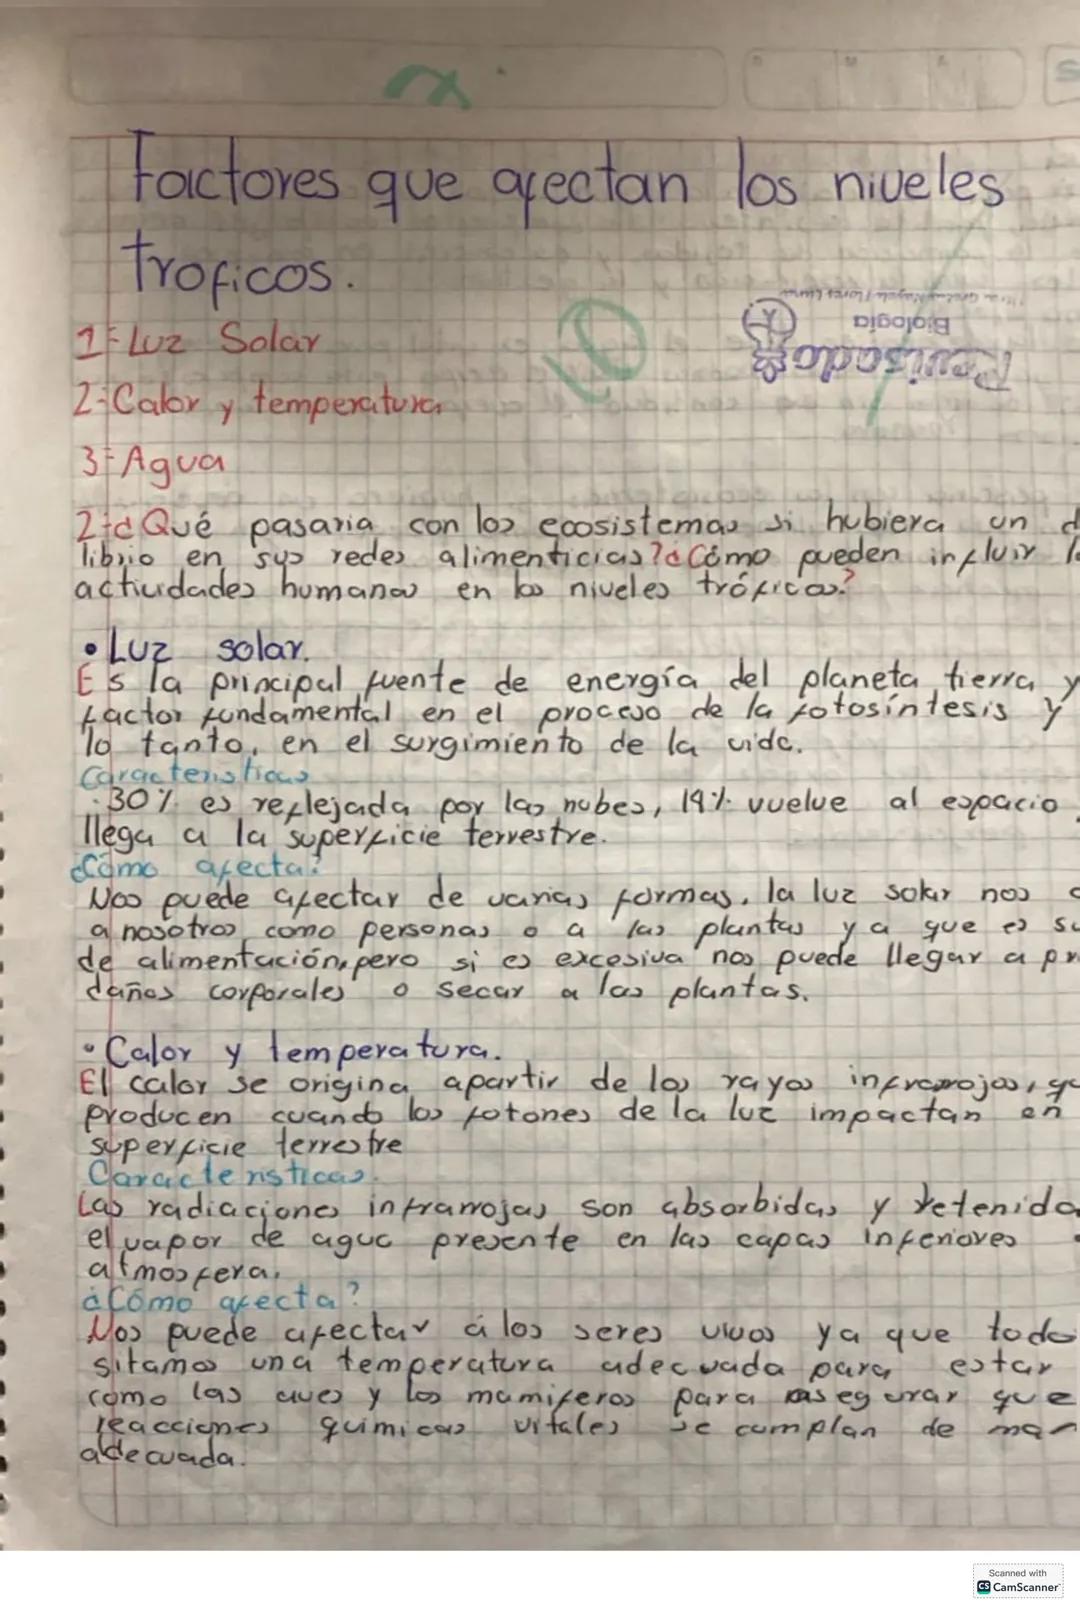 Factores que afectan los niveles
troficos.
Revisado
Biología
10
1-Luz Solar
2-Calor y temperatura
3-Agua
2-¿Qué pasaria con los ecosistemas si hubiera un d
librio en sus redes alimenticias? ¿Cómo pueden influir l
actividades humanas en los niveles tróficos?
• Luz solar.
Es la principal fuente de energía del planeta tierra y
factor fundamental en el proceso de la fotosíntesis y
lo tanto, en el surgimiento de la vida.
Caracteristicas
·30% es reflejada por las nubes, 19% vuelve al espacio
llega a la superficie terrestre.
¿Cómo afecta?
Nos puede afectar de varias formas, la luz solar nos
a nosotros como personas o a las plantas ya que es su
de alimentación, pero si es excesiva nos puede llegar a pr
daños corporales o secar a las plantas.
• Calor y temperatura.
El calor se origina apartir de los rayos infrarrojos, qu
producen cuando los fotones de la luz impactan en
superficie terrestre
Caracteristicas.
Las radiaciones infrarrojas son absorbidas y retenida
el vapor de agua presente en las capas inferiores
atmosfera.
¿Cómo afecta?
Nos puede afectar a los seres vivos ya que todo
sitamos una temperatura adecuada para estar
como las aves y los mamiferos para asegurar que
reacciones quimicas vitales se cumplan de man
adecuada.
Scanned with
CS CamScanner